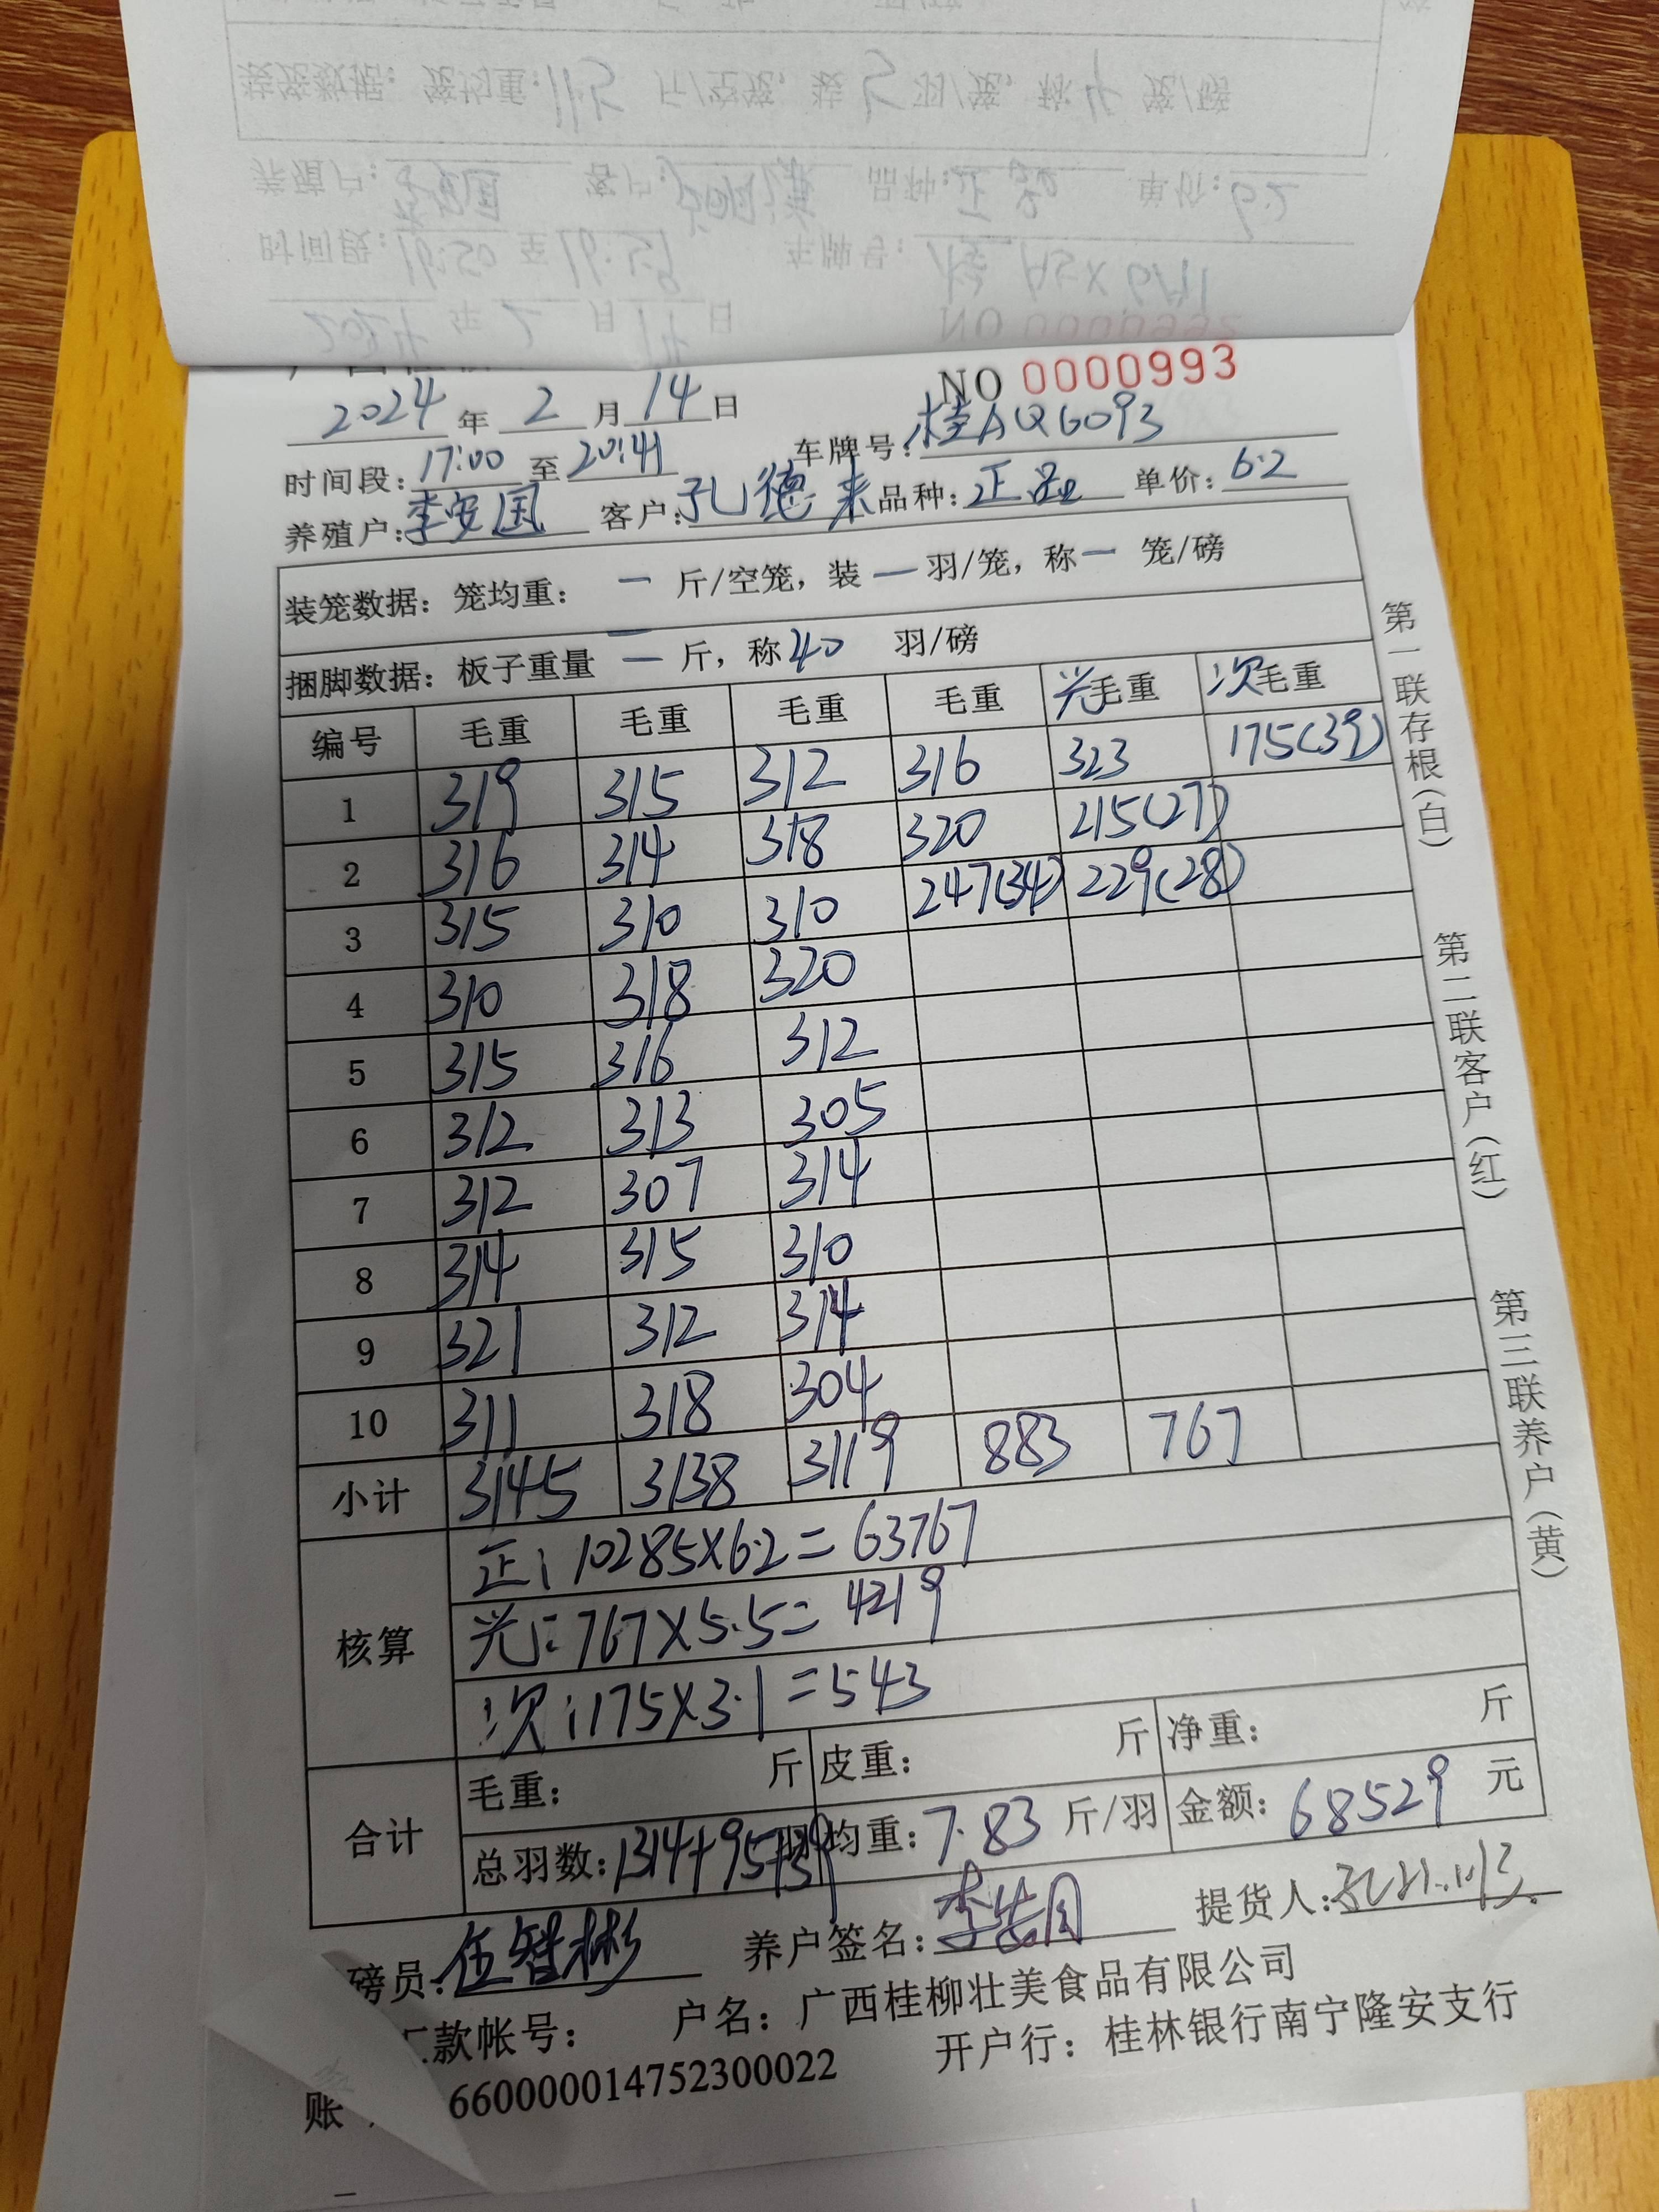 装笼数据：笼均重：11.5 斤/空笼，装 5 羽/笼，称 4 笼/磅
养殖户： 客户： 品种：正品 单价：6.2
时间段：16:50 至 16:59 车牌号：桂
2024 年 2 月 14 日 NO 0000992
2024 年 2 月 14 日 NO 0000993
时间段：17:00 至 20:41 车牌号：桂AQ6093
养殖户：李安国 客户：孔德来 品种：正品 单价：6.2
装笼数据：笼均重： 一 斤/空笼，装 一 羽/笼，称 一 笼/磅
捆脚数据：板子重量 一 斤，称 40 羽/磅
编号 毛重 毛重 毛重 毛重 光毛重 次毛重
1 319 315 312 316 323 175(39)
2 316 314 318 320 215(27)
3 315 310 310 247(34) 229(28)
4 310 318 320
5 315 316 312
6 312 313 305
7 312 307 314
8 314 315 310
9 321 312 314
10 311 318 304
小计 3145 3138 3119 883 767
核算
正：10285×6.2=63767
光：767×5.5=4219
次：175×3.1=543
合计
毛重： 斤 皮重： 斤 净重： 斤
总羽数：1314+95+39 羽 均重：7.83 斤/羽 金额：68529 元
磅员：伍智彬 养户签名： 提货人：
款帐号： 户名：广西桂柳壮美食品有限公司
账 660000014752300022 开户行：桂林银行南宁隆安支行
第一联存根（白）
第二联客户（红）
第三联养户（黄）